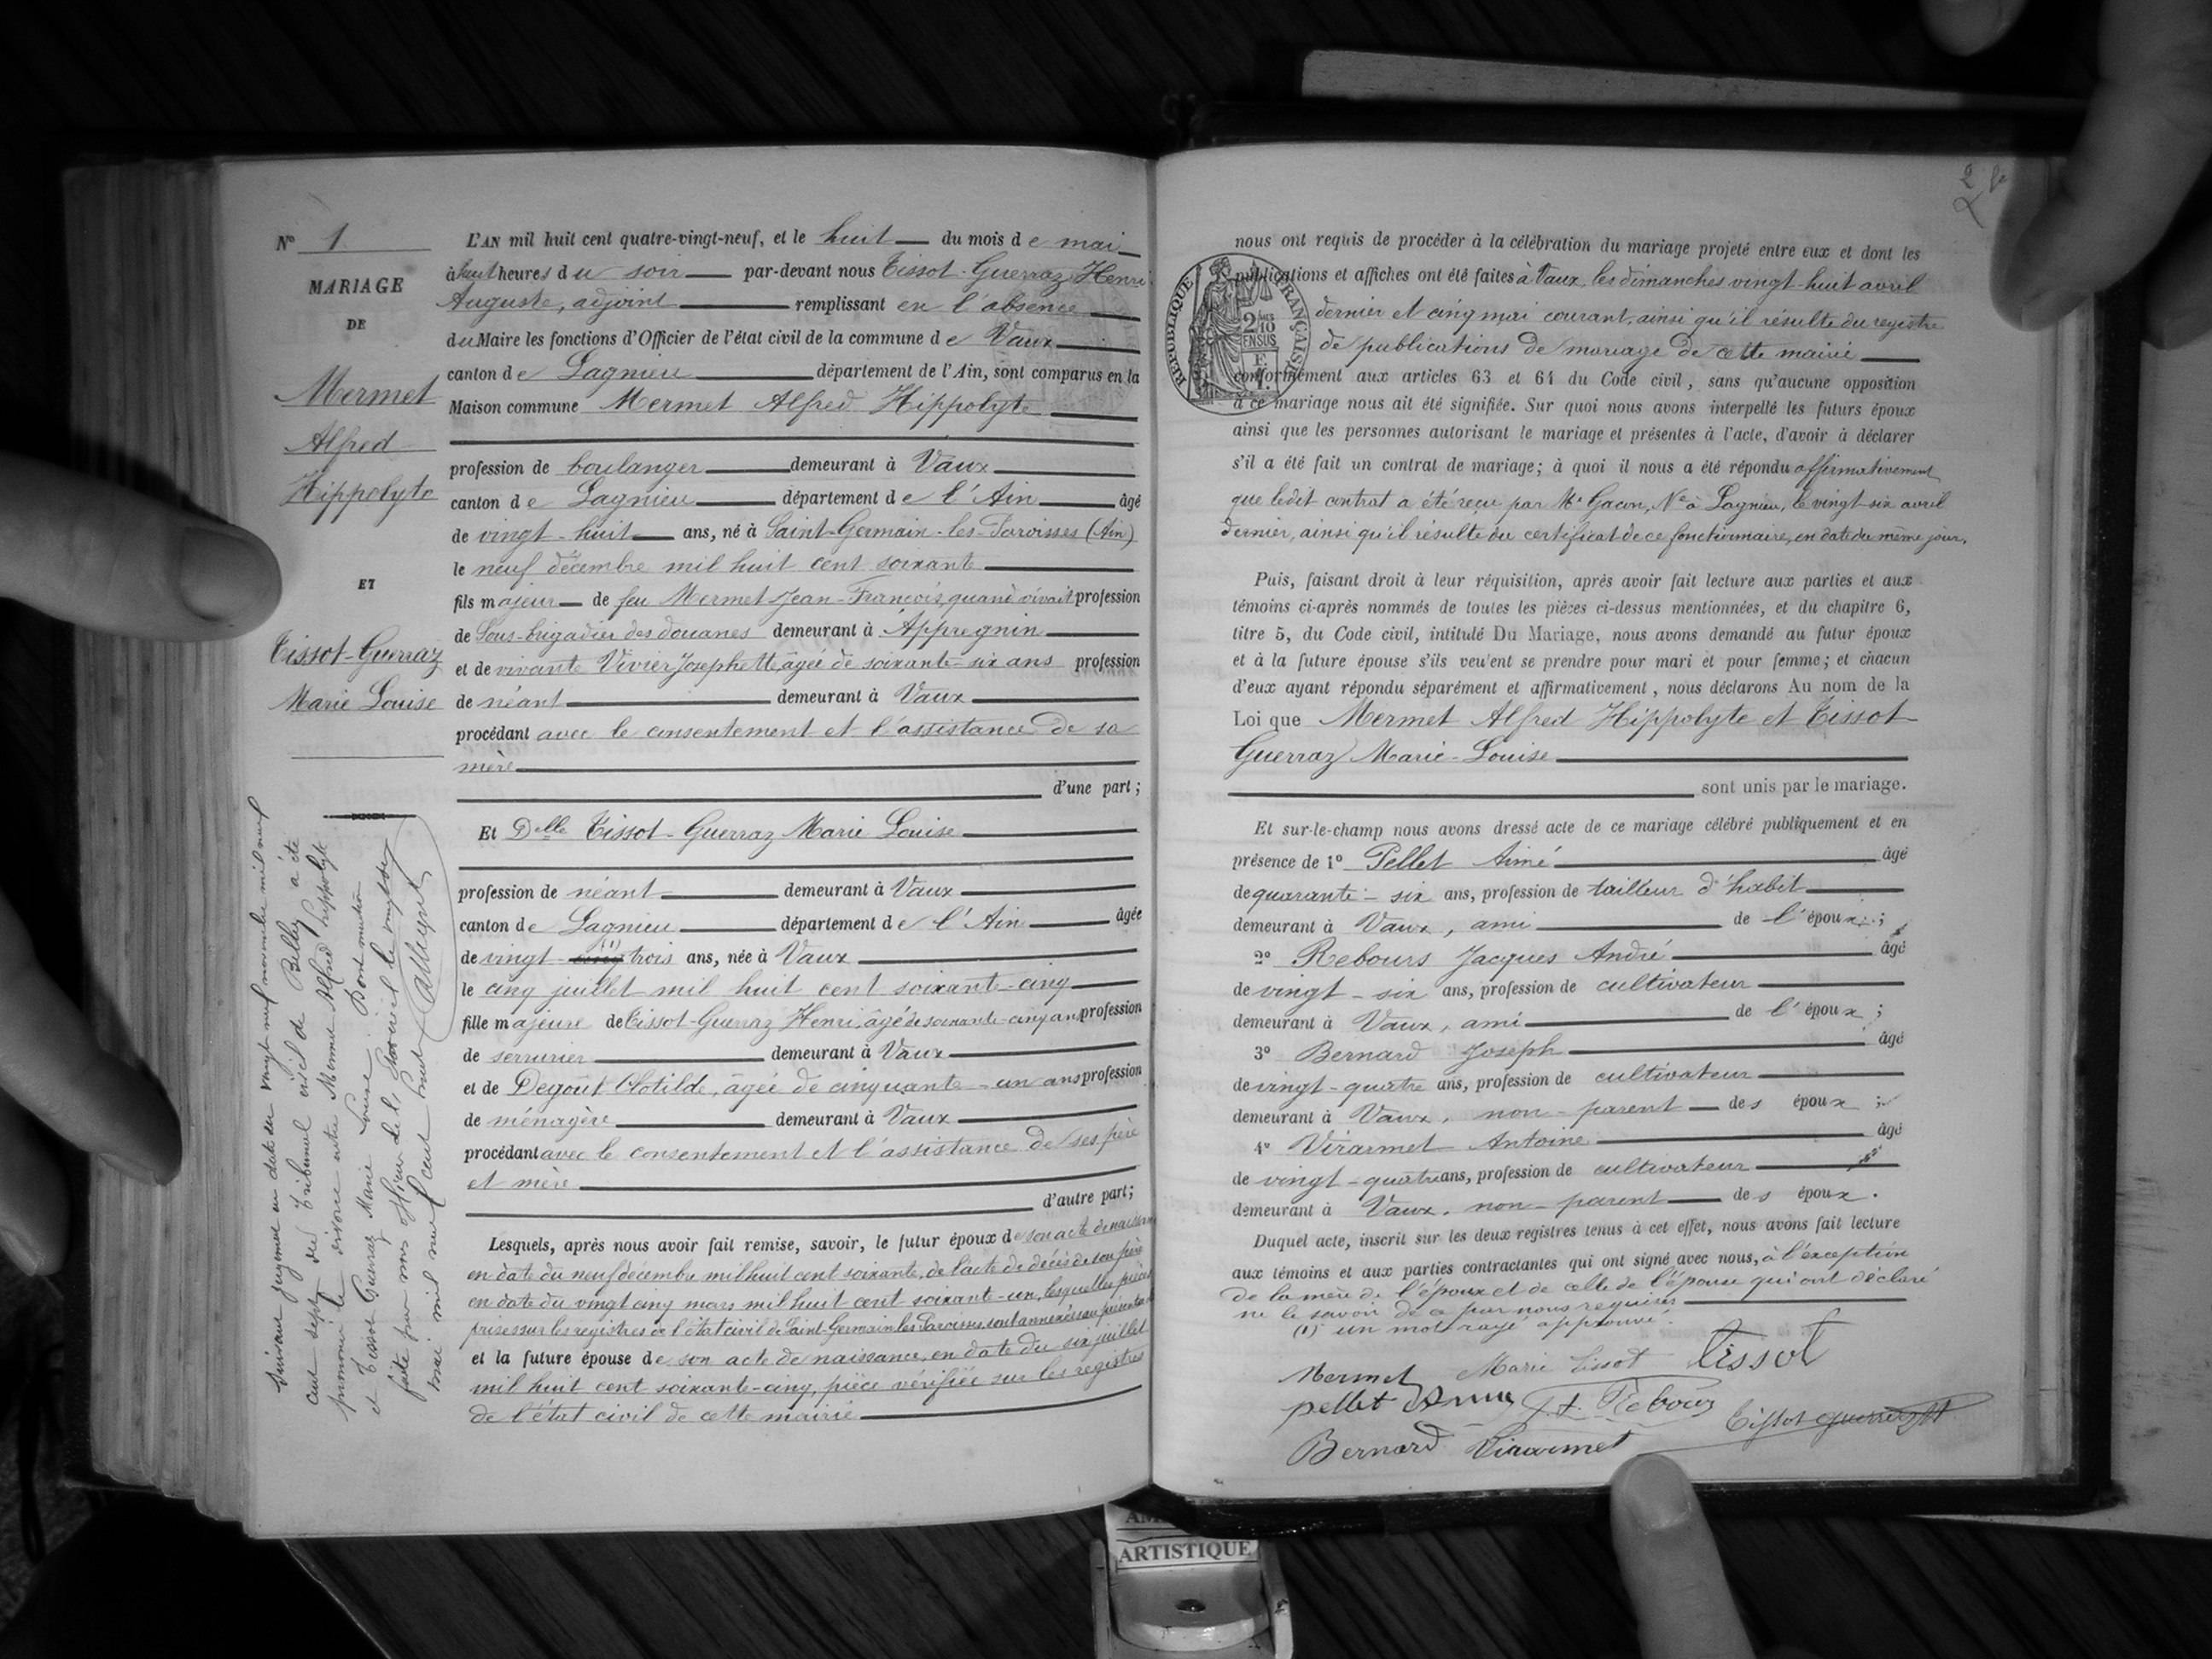 N° 1
MARIAGE
DE
Mermet
Alfred
Hippolyte
ET
Tissot-Guerraz
Marie Louise
Suivant jugement en date du vingt neuf novembre mil neuf
cent sept du Tribunal civil de Belley a été
prononcé le divorce entre Mermet Alfred Hippolyte
et Tissot Guerraz Marie Louise. Dont mention
faite par nous officier de l'état civil le vingt
mai mil neuf cent huit
L'AN mil huit cent quatre-vingt-neuf, et le huit du mois de mai
à huit heures du soir par-devant nous Tissot-Guerraz Henri
Auguste, adjoint remplissant en l'absence
du Maire les fonctions d'Officier de l'état civil de la commune de Vaux
canton de Lagnieu département de l'Ain, sont comparus en la
Maison commune Mermet Alfred Hippolyte
profession de boulanger demeurant à Vaux
canton de Lagnieu département de l'Ain âgé
de vingt-huit ans, né à Saint-Germain-les-Paroisses (Ain)
le neuf décembre mil huit cent soixante
fils majeur de feu Mermet Jean-François, quand vivait profession
de Sous-brigadier des douanes demeurant à Appregnin
et de vivante Vivier Josephette, âgée de soixante-six ans profession
de néant demeurant à Vaux
procédant avec le consentement et l'assistance de sa
mère
d'une part;
Et Delle Tissot-Guerraz Marie Louise
profession de néant demeurant à Vaux
canton de Lagnieu département de l'Ain âgée
de vingt-cinq (1) trois ans, née à Vaux
le cinq juillet mil huit cent soixante-cinq
fille majeure de Tissot-Guerraz Henri, âgé de soixante-cinq ans profession
de serrurier demeurant à Vaux
et de Degout Clotilde, âgée de cinquante-un ans profession
de ménagère demeurant à Vaux
procédant avec le consentement et l'assistance de ses père
et mère
d'autre part;
Lesquels, après nous avoir fait remise, savoir, le futur époux de son acte de naissance
en date du neuf décembre mil huit cent soixante, de l'acte de décès de son père
en date du vingt cinq mars mil huit cent soixante-un, lesquelles pièces
prises sur les registres de l'état civil de Saint-Germain les Paroisses, sont annexées au présent
et la future épouse de son acte de naissance, en date du six juillet
mil huit cent soixante-cinq, pièce vérifiée sur les registres
de l'état civil de cette mairie
2
RÉPUBLIQUE FRANÇAISE
2/10
EN SUS
nous ont requis de procéder à la célébration du mariage projeté entre eux et dont les
publications et affiches ont été faites à Vaux, les dimanches vingt-huit avril
dernier et cinq mai courant, ainsi qu'il résulte du registre
de publications de mariage de cette mairie
conformément aux articles 63 et 64 du Code civil, sans qu'aucune opposition
à ce mariage nous ait été signifiée. Sur quoi nous avons interpellé les futurs époux
ainsi que les personnes autorisant le mariage et présentes à l'acte, d'avoir à déclarer
s'il a été fait un contrat de mariage; à quoi il nous a été répondu affirmativement
que ledit contrat a été reçu par Me Gacon, Nre à Lagnieu, le vingt-six avril
dernier, ainsi qu'il résulte du certificat de ce fonctionnaire, en date du même jour.
Puis, faisant droit à leur réquisition, après avoir fait lecture aux parties et aux
témoins ci-après nommés de toutes les pièces ci-dessus mentionnées, et du chapitre 6,
titre 5, du Code civil, intitulé Du Mariage, nous avons demandé au futur époux
et à la future épouse s'ils veulent se prendre pour mari et pour femme; et chacun
d'eux ayant répondu séparément et affirmativement, nous déclarons Au nom de la
Loi que Mermet Alfred Hippolyte et Tissot
Guerraz Marie-Louise
sont unis par le mariage.
Et sur-le-champ nous avons dressé acte de ce mariage célébré publiquement et en
présence de 1° Pellet Aimé âgé
de quarante-six ans, profession de tailleur d'habit
demeurant à Vaux, ami de l'époux;
2° Rebours Jacques André âgé
de vingt-six ans, profession de cultivateur
demeurant à Vaux, ami de l'époux;
3° Bernard Joseph âgé
de vingt-quatre ans, profession de cultivateur
demeurant à Vaux, non-parent des époux;
4° Virarmet Antoine âgé
de vingt-quatre ans, profession de cultivateur
demeurant à Vaux, non-parent des époux.
Duquel acte, inscrit sur les deux registres tenus à cet effet, nous avons fait lecture
aux témoins et aux parties contractantes qui ont signé avec nous, à l'exception
de la mère de l'époux et de celle de l'épouse qui ont déclaré
ne le savoir de ce par nous requises
(1) un mot rayé approuvé.
Mermet Marie Tissot Tissot
pellet J. A. Rebours Tissot guerraz
Bernard Virarmet
ARTISTIQUE